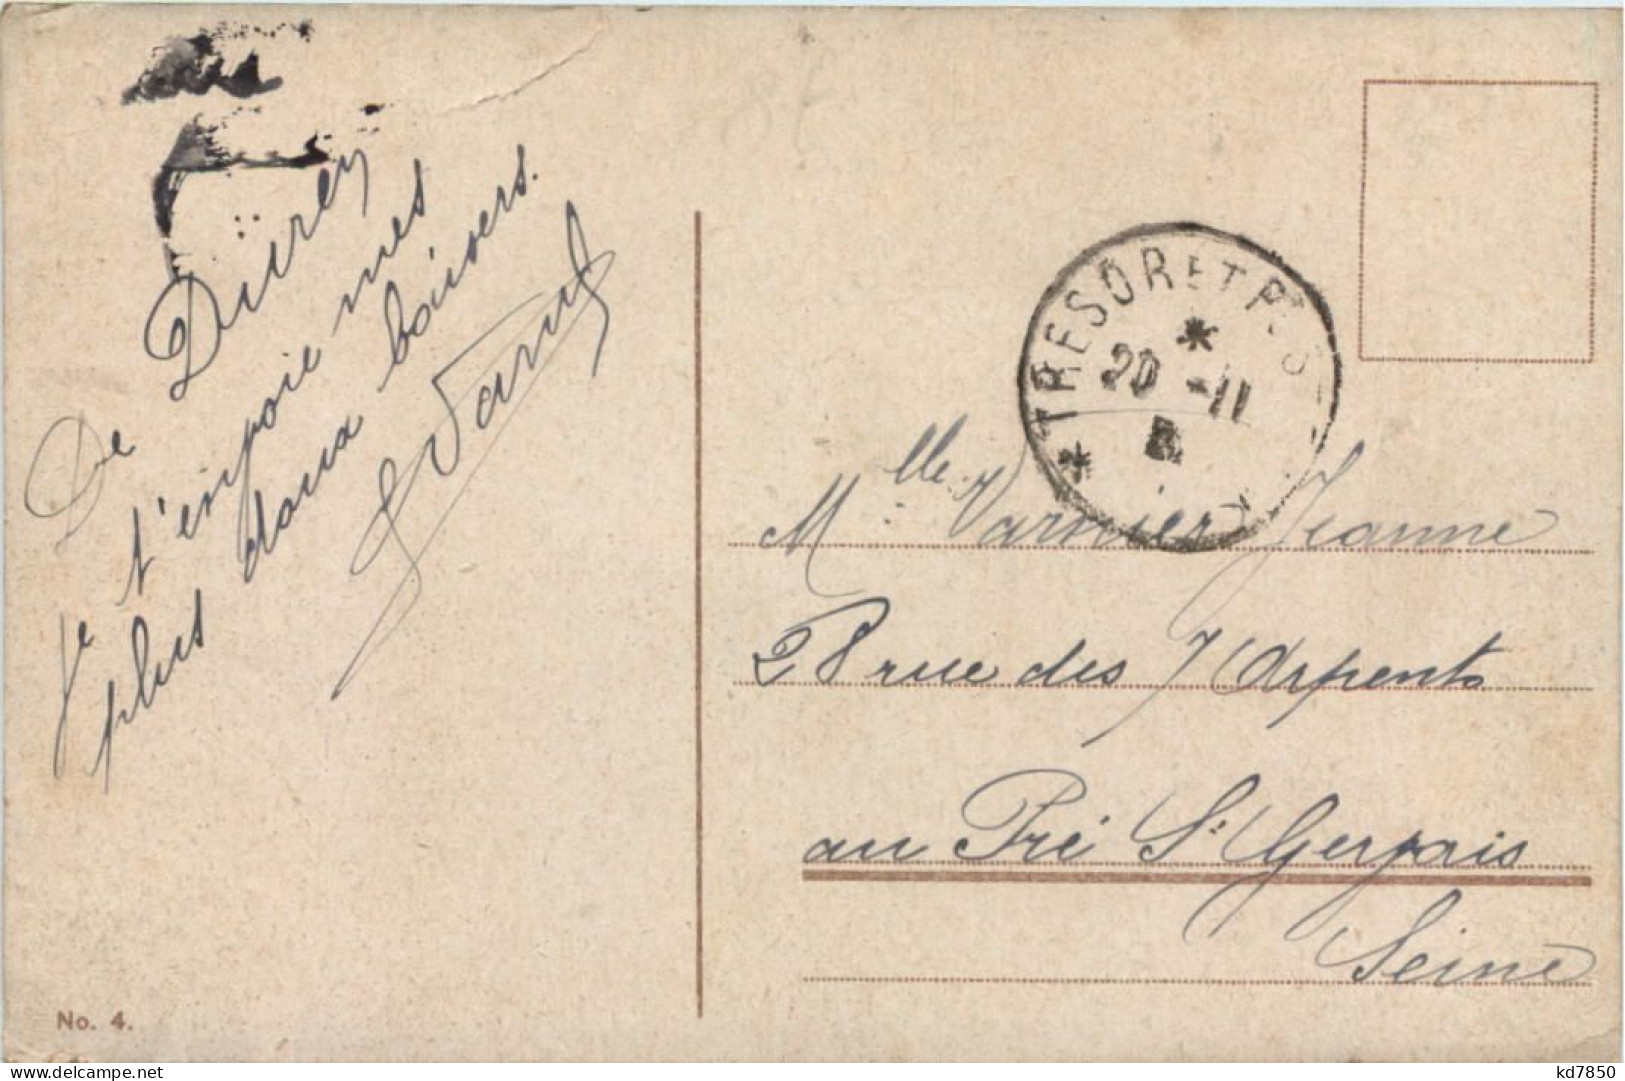 De Düren
Je t'envoie mes
plus doux baisers.
TRESOR ET P
20 -11
Mlle Varnier Jeanne
28 rue des 7 Arpents
au Pré St Gervais
Seine
No. 4.
delcampe.net
kd7850